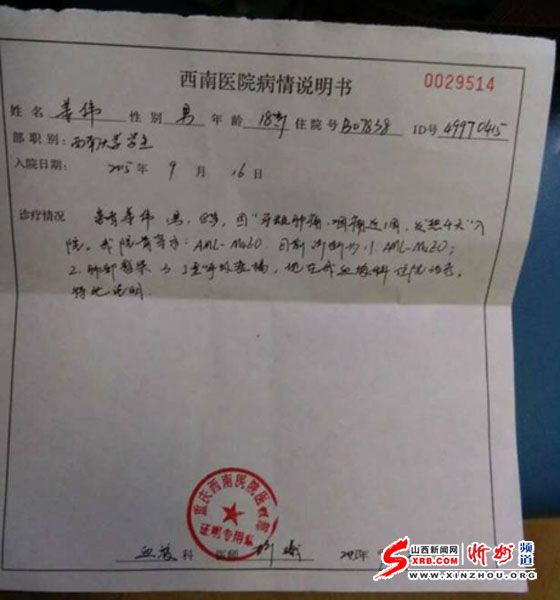 西南医院病情说明书
0029514
姓名 姜伟 性别 男 年龄 18岁 住院号 B07838 ID号 49970415
部职别: 西南大学学生
入院日期: 2015年 9 月 16 日
诊疗情况 患者姜伟 男, 18岁, 因"牙龈肿痛、咽痛近1周, 发热4天"入
院。我院骨穿示: AML-M2. 目前诊断为: 1. AML-M2;
2. 肺部感染
血液科住院治疗.
特此说明.
重庆西南医院医
证明专用
血液 科 医师
山西新闻网 忻州 频道
SXRB.com
WWW.XINZHOU.ORG